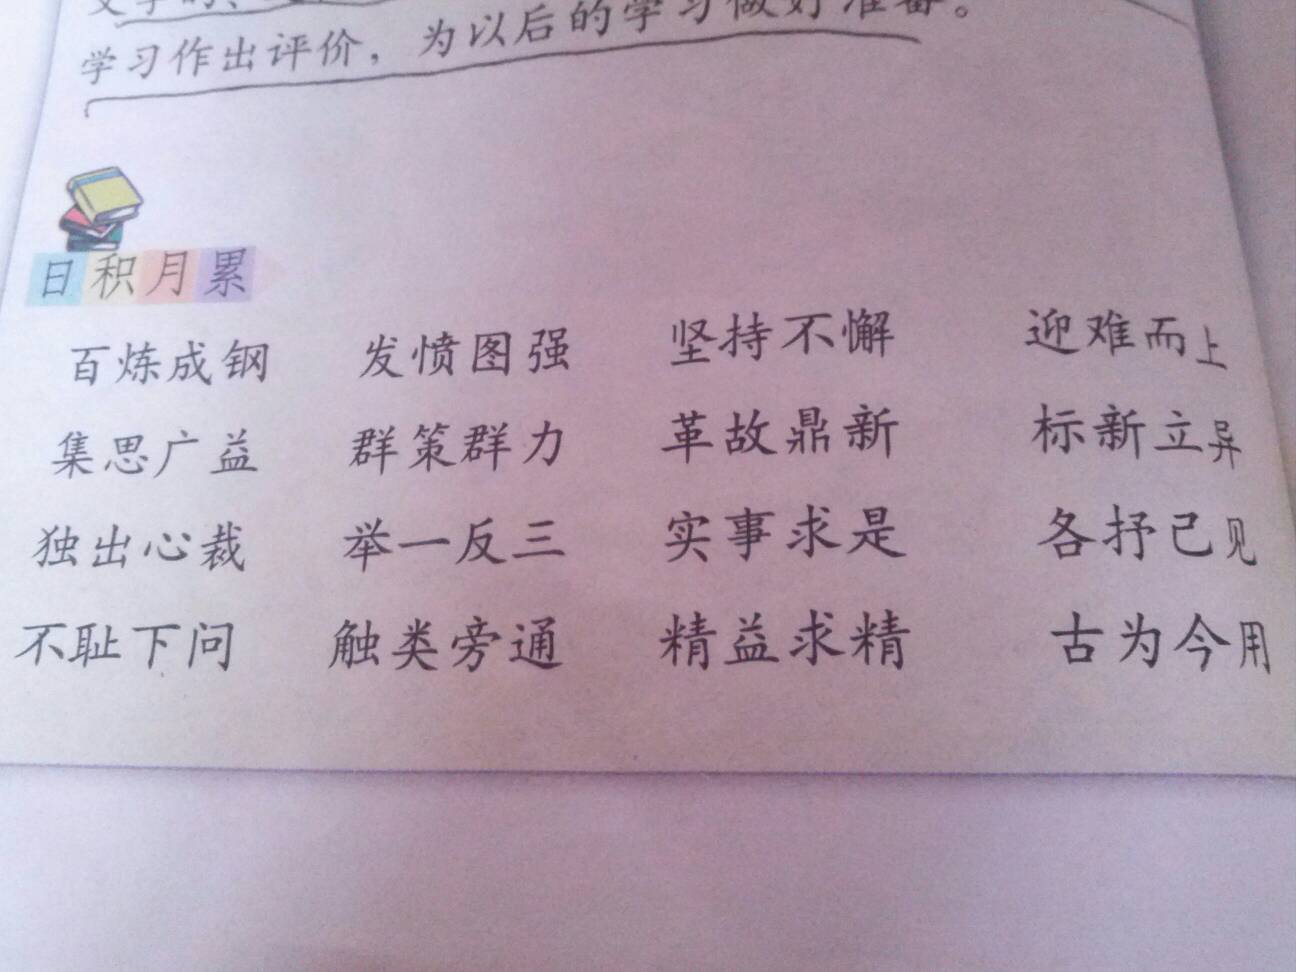 学习作出评价，为以后的学习做好准备。
日积月累
百炼成钢 发愤图强 坚持不懈 迎难而上
集思广益 群策群力 革故鼎新 标新立异
独出心裁 举一反三 实事求是 各抒己见
不耻下问 触类旁通 精益求精 古为今用